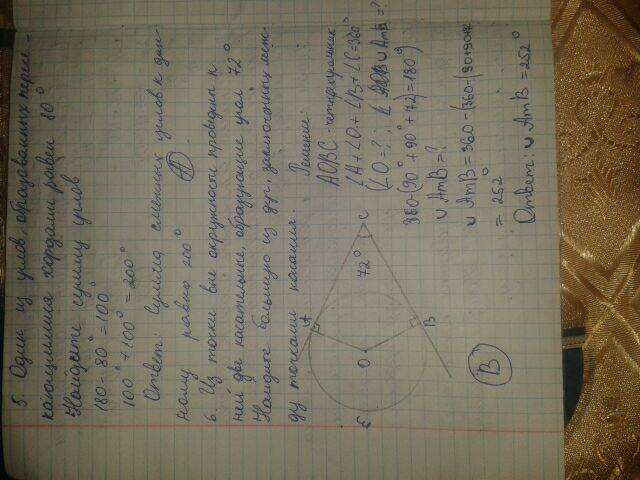 5. Один из углов, образованных пересе-
кающимися хордами равен 80°
Найдите сумму углов
180-80°=100°
100°+100°=200°
Ответ: Сумма смежных углов к дан-
ному равна 200°
A
6. Из точки вне окружности проведены к
ней две касательные, образующие угол 72°
Найдите большую из дуг, заключенных меж-
ду точками касания.
Решение:
AOBC - четырехугольник
∠A+∠O+∠B+∠C=360°
∠O=?; ∪AmB=?
360-(90°+90°+72)=180°)
∪AmB=?
∪AmB=360-(360-(90+90+72
= 252°
Ответ: ∪AmB=252°
A
72°
C
O
B
E
B